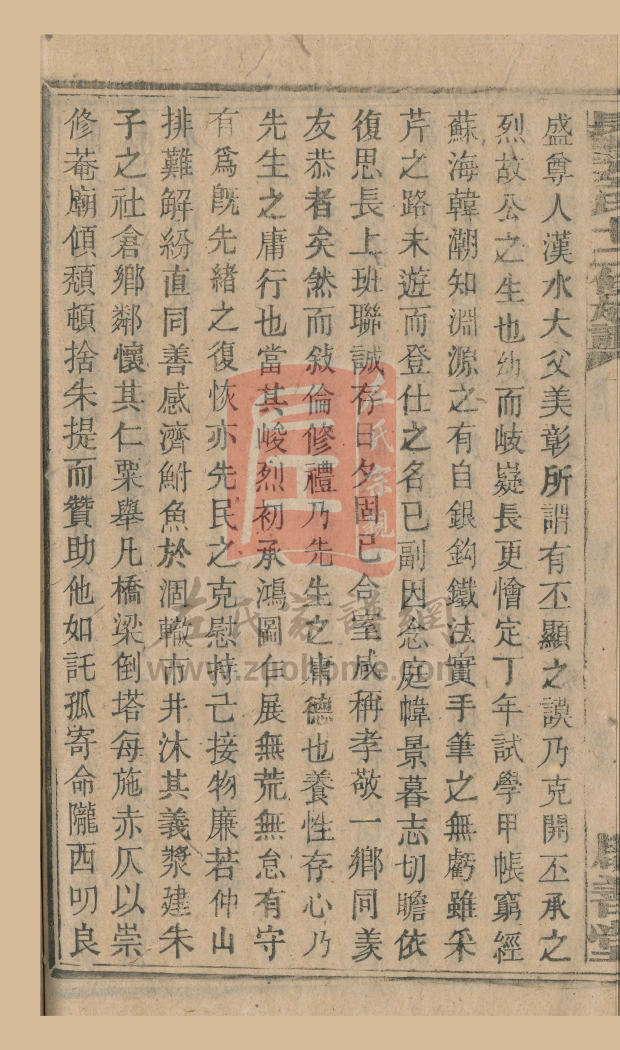 盛尊人漢水大父美彰所謂有丕顯之謨乃克開丕承之
烈故公之生也幼而岐嶷長更懀定丁年試學甲帳窮經
蘇海韓潮知淵源之有自銀鈎鐵法實手筆之無虧雖采
芹之路未遊而登仕之名已副因念庭幃景暮志切瞻依
復思長上班聯誠存日夕固已合室咸稱孝敬一鄉同羨
友恭者矣然而敍倫修禮乃先生之庸德也養性存心乃
先生之庸行也當其峻烈初承鴻圖仁展無荒無怠有守
有爲旣先緒之復恢亦先民之克慰持己接物廉若仲山
排難解紛直同善感濟鮒魚於涸轍市井沐其義漿建朱
子之社倉鄉鄰懷其仁粟舉凡橋梁倒塔每施赤仄以崇
修菴廟傾頽頓捨朱提而贊助他如託孤寄命隴西叨良
善堂
左氏宗親
左氏家譜網
www.zuohome.com